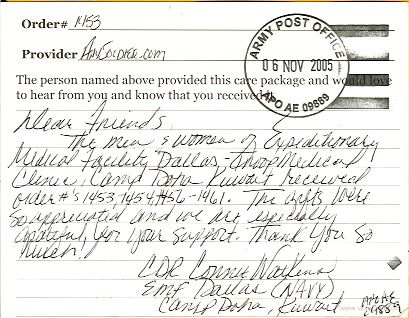 Order# 1453
Provider AnySoldier.com
ARMY POST OFFICE
06 NOV 2005
APO AE 09889
The person named above provided this care package and would love
to hear from you and know that you received it.
Dear Friends,
The men & women of Expeditionary
Medical Facility Dallas - Troop Medical
Clinic, Camp Doha Kuwait received
order #'s 1453, 1454, 1456-1461. The gifts were
so appreciated and we are especially
grateful for your support. Thank you so
much!
CDR Connie Watkins
EMF Dallas (NAVY)
Camp Doha, Kuwait APO AE
09889